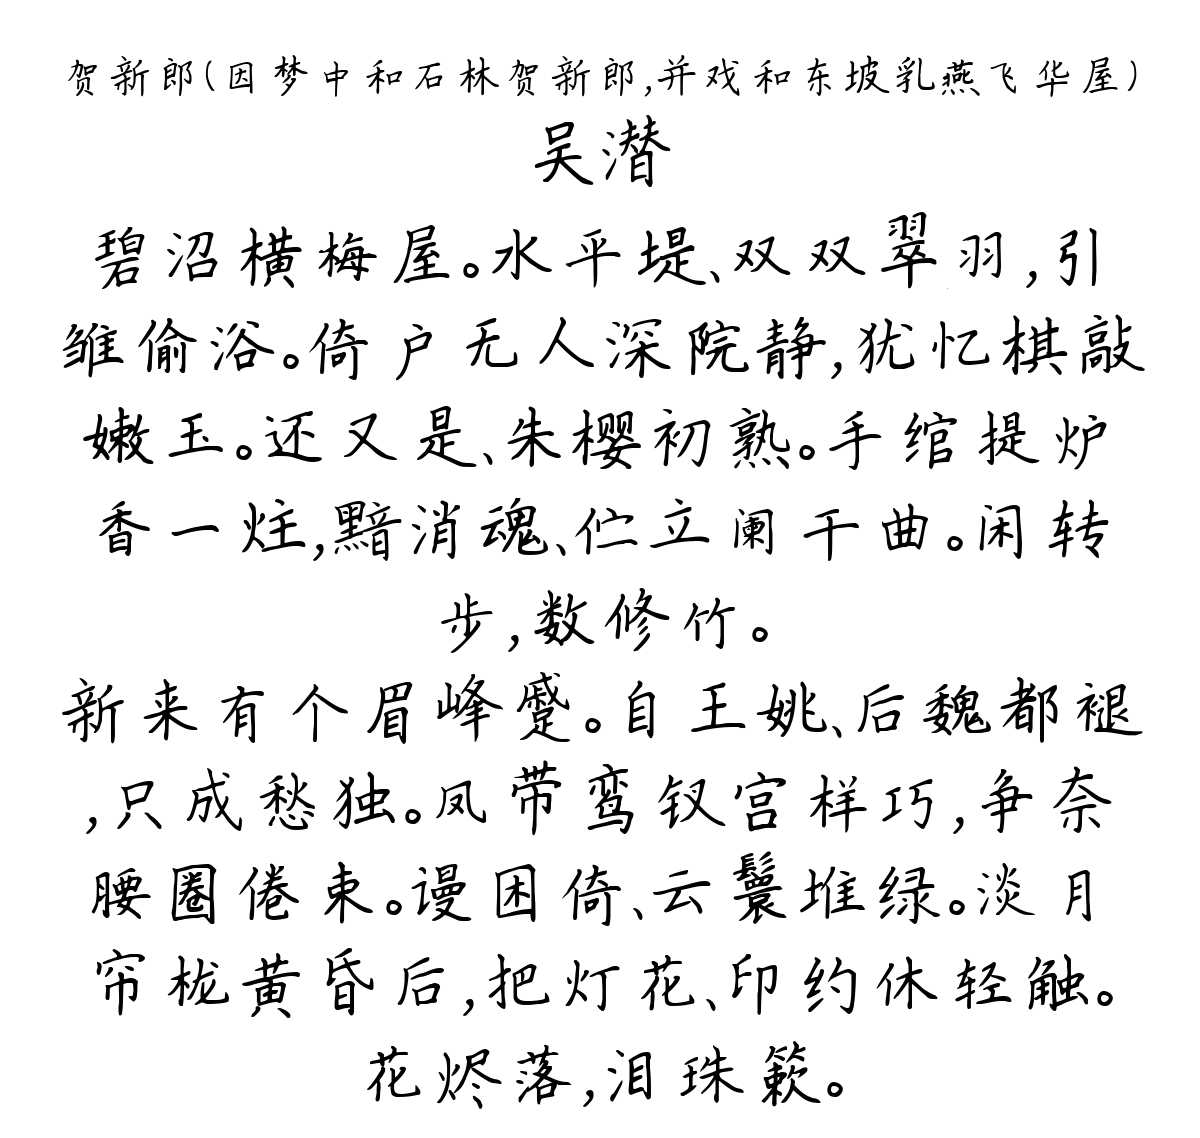 贺新郎(因梦中和石林贺新郎,并戏和东坡乳燕飞华屋)
吴潜
碧沼横梅屋。水平堤、双双翠羽,引
雏偷浴。倚户无人深院静,犹忆棋敲
嫩玉。还又是、朱樱初熟。手绾提炉
香一炷,黯消魂、伫立阑干曲。闲转
步,数修竹。
新来有个眉峰蹙。自王姚、后魏都褪
,只成愁独。凤带鸾钗宫样巧,争奈
腰圈倦束。谩困倚、云鬟堆绿。淡月
帘栊黄昏后,把灯花、印约休轻触。
花烬落,泪珠簌。